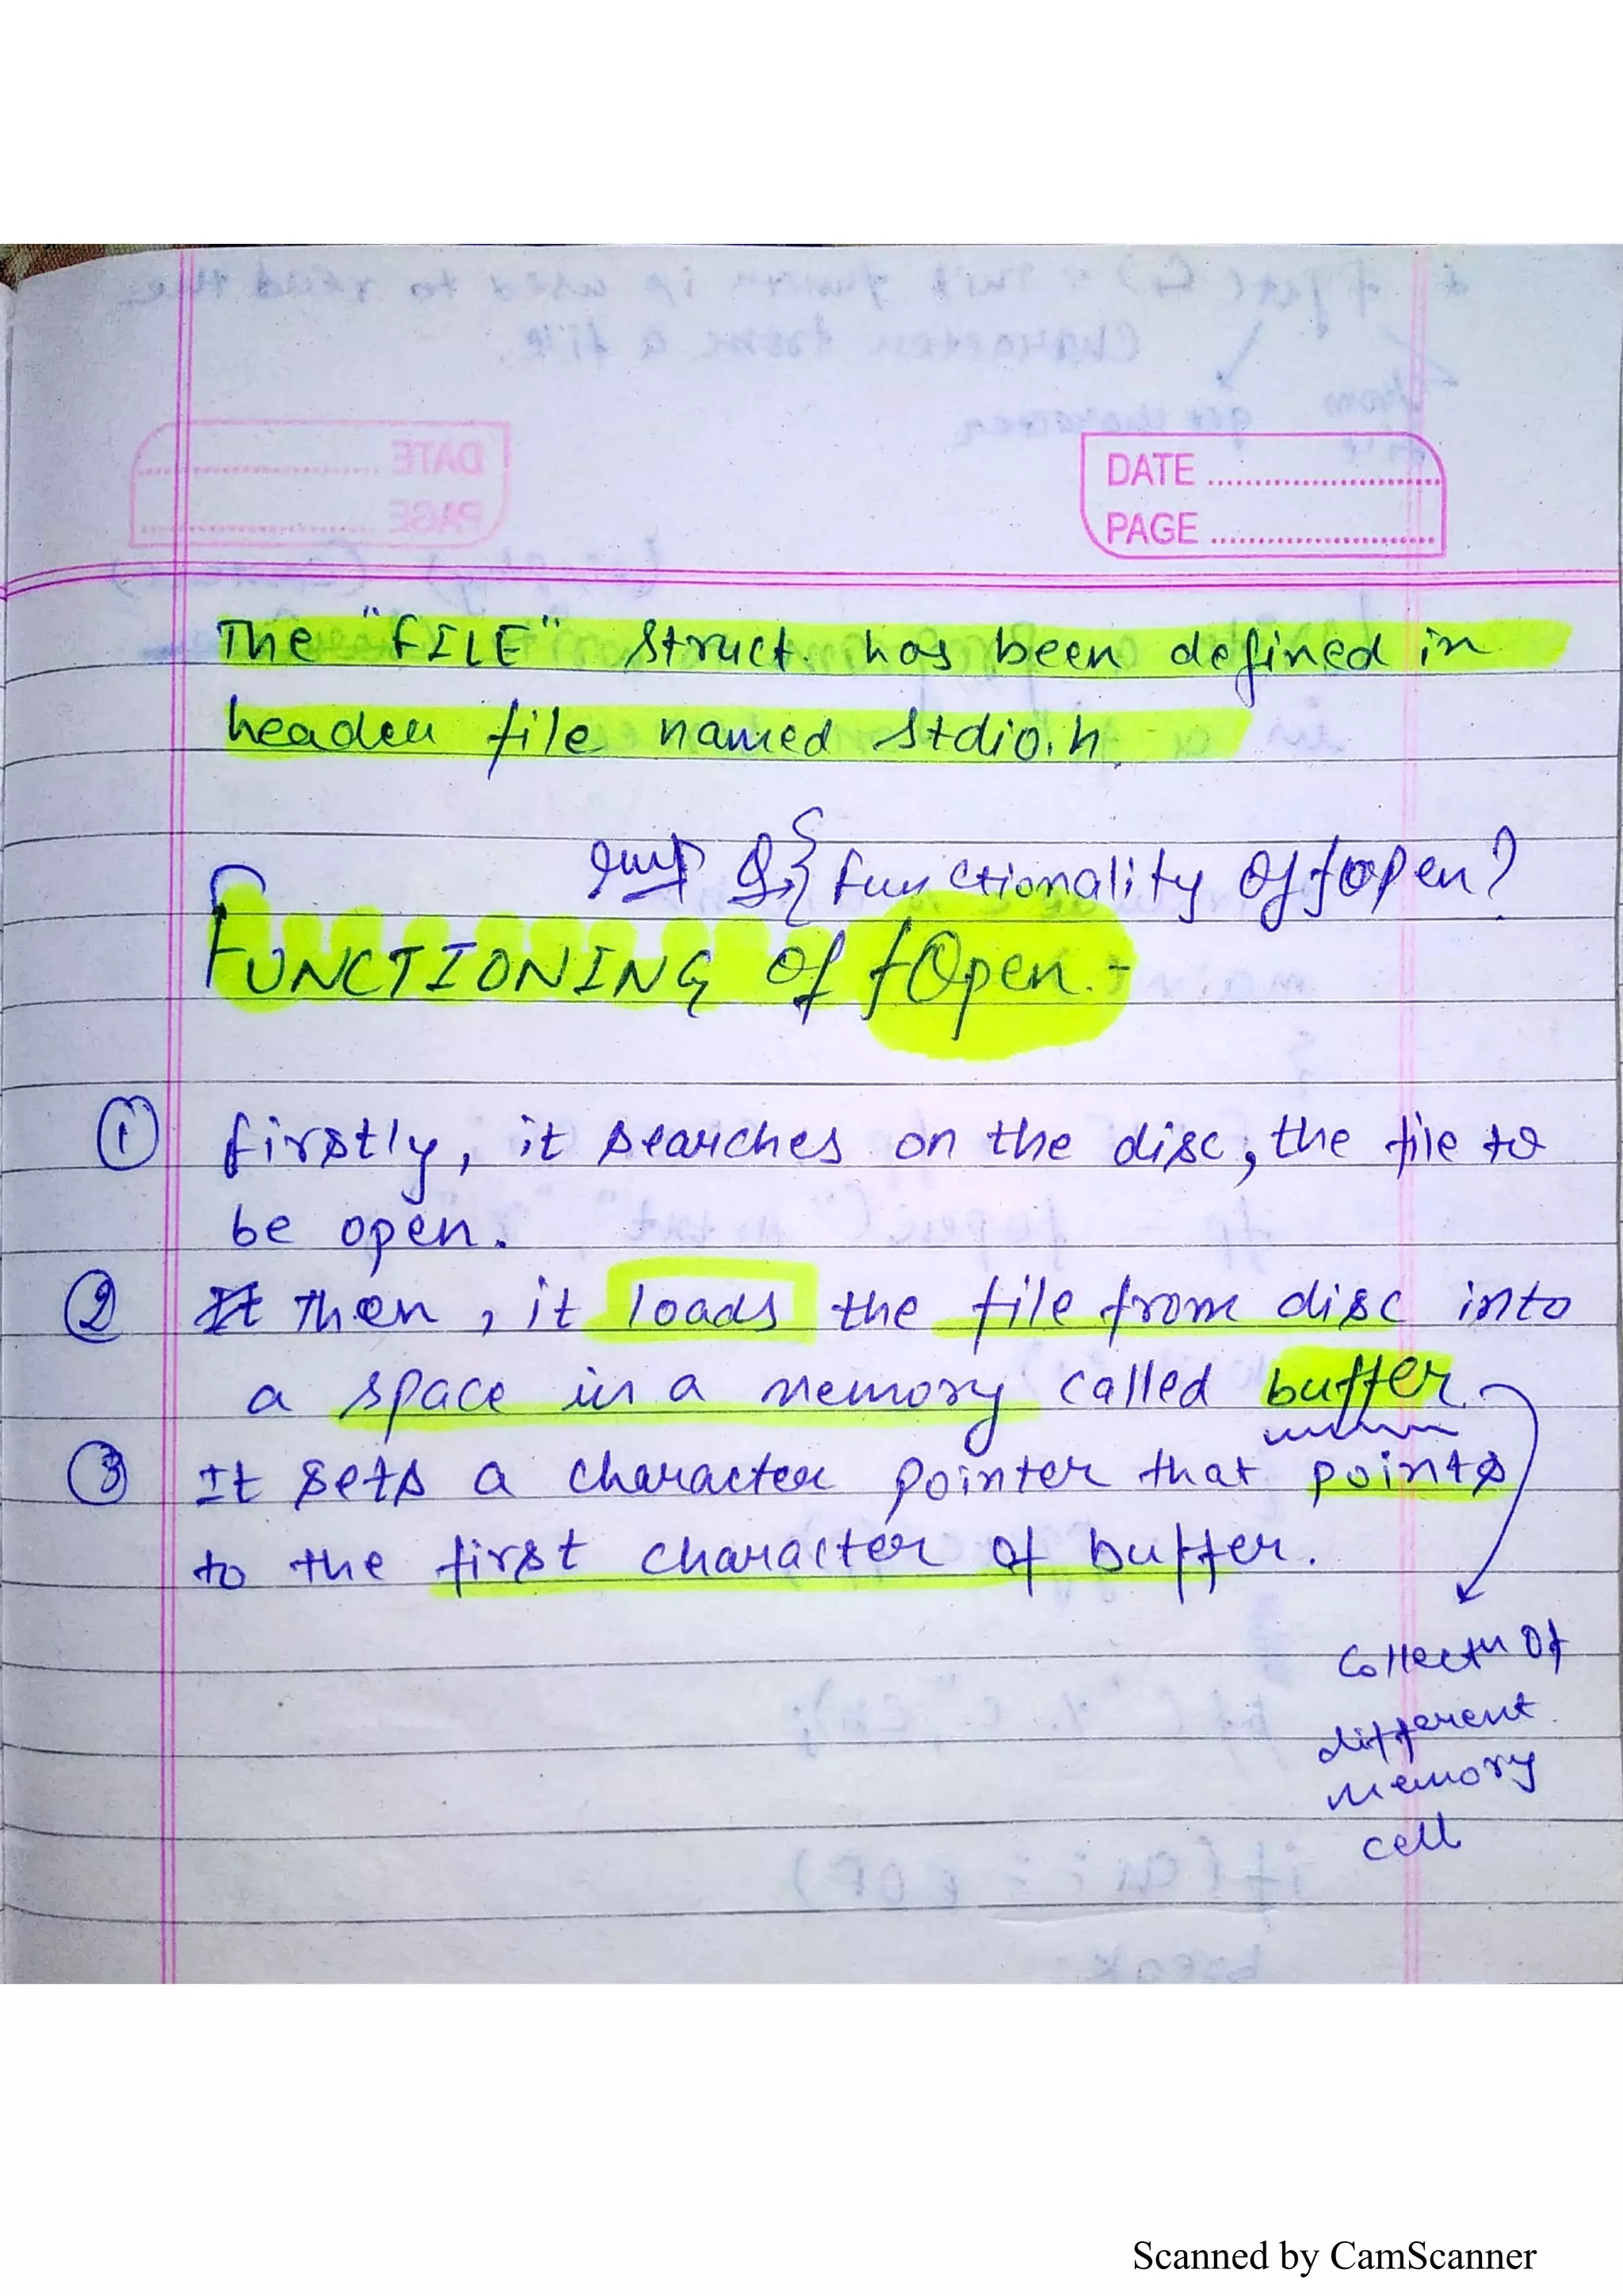 DATE
PAGE
The "FILE" struct. has been defined in
header file named stdio.h.
Imp Q.} functionality of fopen?
FUNCTIONING of fOpen -
① firstly, it searches on the disc, the file to
be open.
② It Then, it loads the file from disc into
a space in a memory called buffer.
③ It sets a character pointer that points
to the first character of buffer.
Collectn Of
different
memory
cell
Scanned by CamScanner